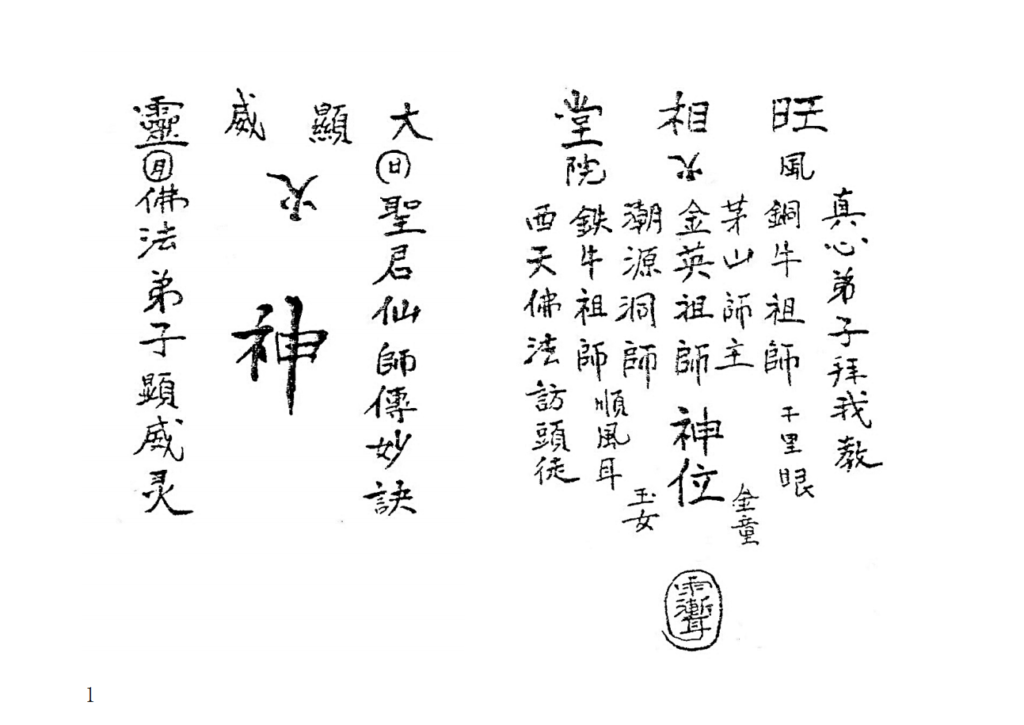 旺相堂
風火院
真心弟子拜我教
銅牛祖師
千里眼
茅山師主
金童
金英祖師
神位
潮源洞師
玉女
鉄牛祖師
順風耳
西天佛法訪頭徒
大顯威靈
日
聖君仙師傳妙訣
火
神
月
佛法弟子顯威灵
1